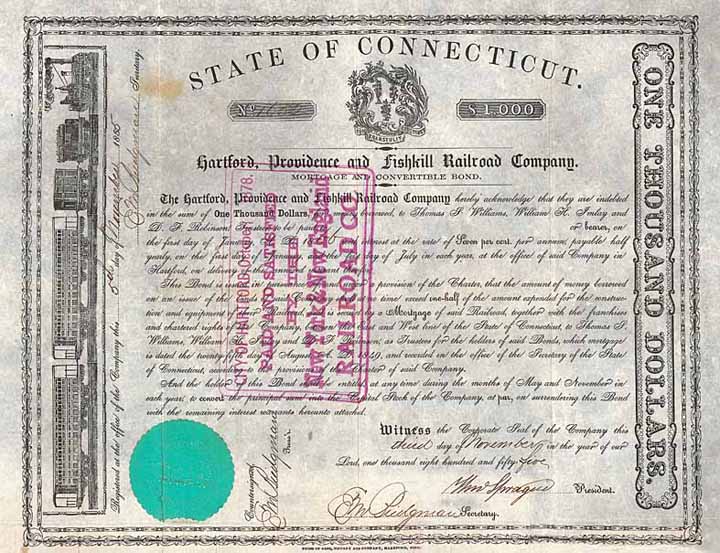 STATE OF CONNECTICUT.
No.
$1,000
Hartford, Providence and Fishkill Railroad Company.
MORTGAGE AND CONVERTIBLE BOND.
The Hartford, Providence and Fishkill Railroad Company hereby acknowledge that they are indebted
in the sum of One Thousand Dollars, borrowed, to Thomas S. Williams, William H. Imlay and
D. F. Robinson, Trustees, to be paid or bearer, on
the first day of January interest at the rate of Seven per cent. per annum, payable half
yearly, on the first day of January, and the day of July in each year, at the office of said Company in
Hartford, on delivery
This Bond is issued in pursuance provision of the Charter, that the amount of money borrowed
on an issue of the time exceed one-half of the amount expended for the construc-
tion and equipment of Road, by a Mortgage of said Railroad, together with the franchises
and chartered rights of Company, East and West line of the State of Connecticut, to Thomas S.
Williams, William H. as Trustees for the holders of said Bonds, which mortgage
is dated the twenty August 1849, and recorded in the office of the Secretary of the State
of Connecticut, according provision of said Company.
And the holder of this Bond entitled, at any time during the months of May and November in
each year, to convert the principal sum into the Capital Stock of the Company, at par, on surrendering this Bond
with the remaining interest warrants hereunto attached.
Witness the Corporate Seal of the Company this
third day of November in the year of our
Lord, one thousand eight hundred and fifty five
Wm Sprague President.
Secretary.
Countersigned
Treas'r.
Registered at the office of the Company this 5th day of November 1855
Secretary.
ONE THOUSAND DOLLARS.
CITY OF HARTFORD, October 1878.
PAID AND SATISFIED
BY THE
New York & New England
RAILROAD CO.